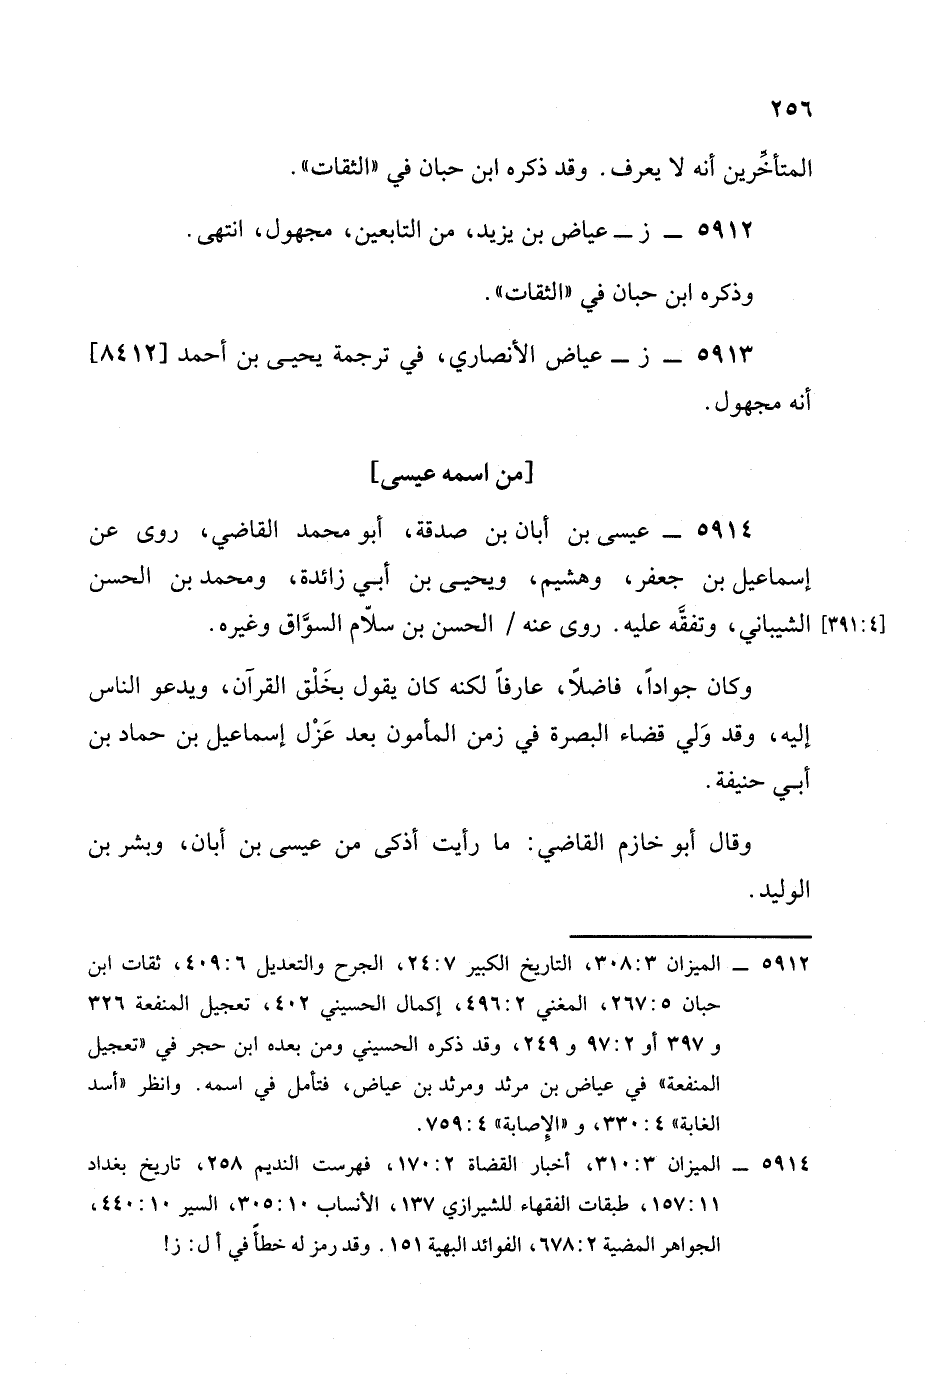 ٢٥٦
المتأخِّرين أنه لا يعرف. وقد ذكره ابن حبان في «الثقات».
٥٩١٢ ــ ز ــ عياض بن يزيد، من التابعين، مجهول، انتهى.
وذكره ابن حبان في «الثقات».
٥٩١٣ ــ ز ــ عياض الأنصاري، في ترجمة يحيى بن أحمد [٨٤١٢]
أنه مجهول.
[من اسمه عيسى]
٥٩١٤ ــ عيسى بن أبان بن صدقة، أبو محمد القاضي، روى عن
إسماعيل بن جعفر، وهشيم، ويحيى بن أبي زائدة، ومحمد بن الحسن
[٣٩١:٤] الشيباني، وتفقَّه عليه. روى عنه / الحسن بن سلاّم السوَّاق وغيره.
وكان جواداً، فاضلاً، عارفاً لكنه كان يقول بخَلْق القرآن، ويدعو الناس
إليه، وقد وَلي قضاء البصرة في زمن المأمون بعد عَزْل إسماعيل بن حماد بن
أبي حنيفة.
وقال أبو خازم القاضي: ما رأيت أذكى من عيسى بن أبان، وبشر بن
الوليد.
٥٩١٢ ــ الميزان ٣٠٨:٣، التاريخ الكبير ٢٤:٧، الجرح والتعديل ٤٠٩:٦، ثقات ابن
حبان ٢٦٧:٥، المغني ٤٩٦:٢، إكمال الحسيني ٤٠٢، تعجيل المنفعة ٣٢٦
و ٣٩٧ أو ٩٧:٢ و ٢٤٩، وقد ذكره الحسيني ومن بعده ابن حجر في «تعجيل
المنفعة» في عياض بن مرثد ومرثد بن عياض، فتأمل في اسمه. وانظر «أسد
الغابة» ٣٣٠:٤، و «الإصابة» ٧٥٩:٤.
٥٩١٤ ــ الميزان ٣١٠:٣، أخبار القضاة ١٧٠:٢، فهرست النديم ٢٥٨، تاريخ بغداد
١٥٧:١١، طبقات الفقهاء للشيرازي ١٣٧، الأنساب ٣٠٥:١٠، السير ٤٤٠:١٠،
الجواهر المضية ٦٧٨:٢، الفوائد البهية ١٥١. وقد رمز له خطأً في أ ل: ز!